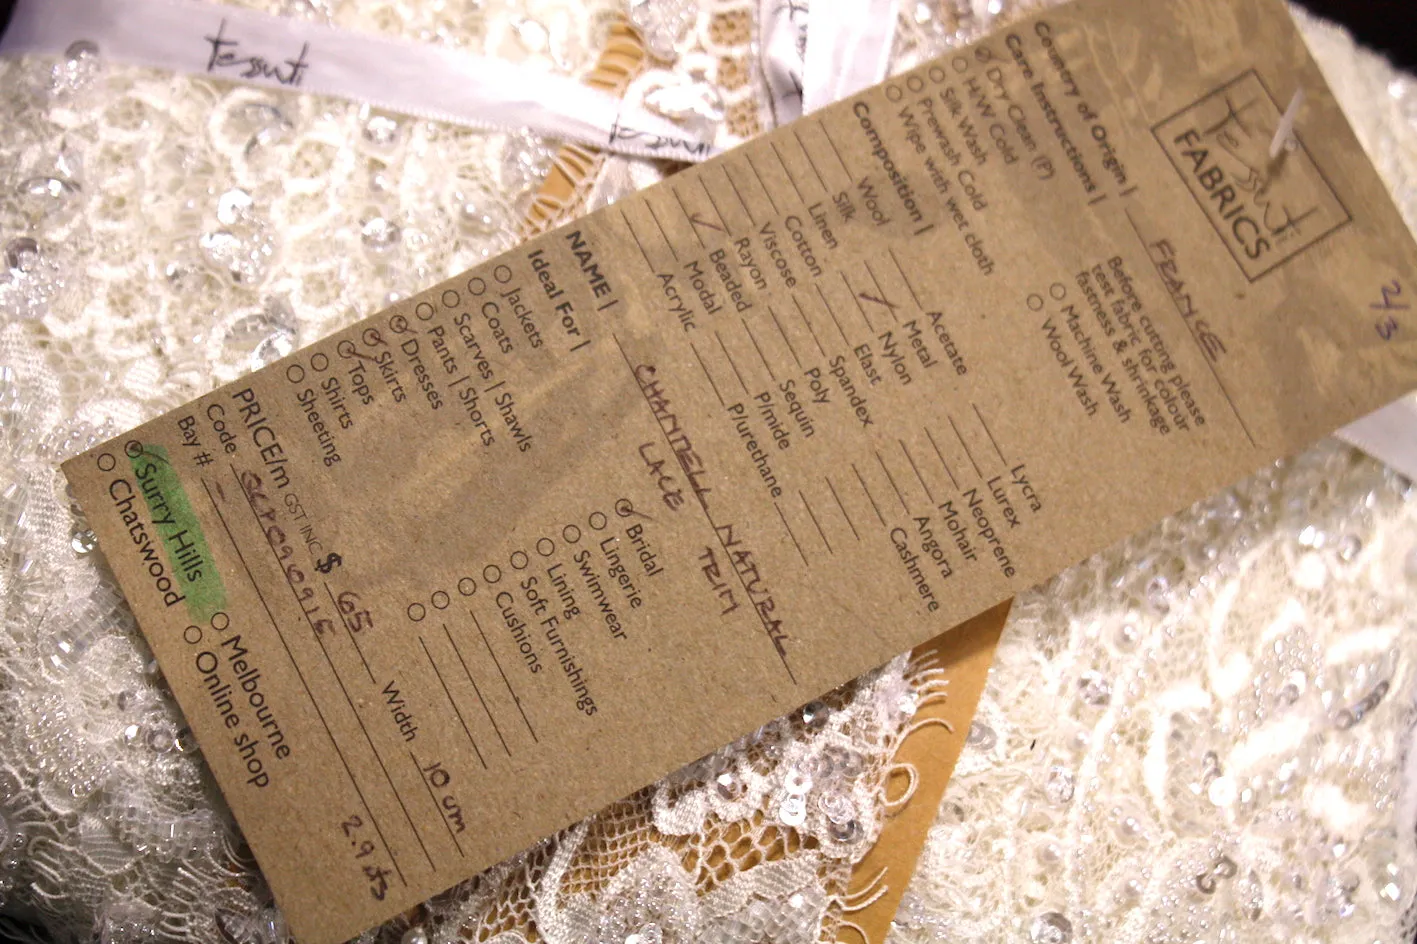 tessuti
tessuti
2/3
tessuti
FABRICS
Country of Origin | FRANCE
Care Instructions |
Dry Clean (P)
H/W Cold
Silk Wash
Prewash Cold
Wipe with wet cloth
Before cutting please
test fabric for colour
fastness & shrinkage
Machine Wash
Wool Wash
Composition |
Wool
Silk
Linen
Cotton
Viscose
Rayon
Beaded
Modal
Acrylic
Acetate
Metal
Nylon
Elast
Spandex
Poly
Sequin
P/mide
P/urethane
Lycra
Lurex
Neoprene
Mohair
Angora
Cashmere
NAME | CHANDELL NATURAL
LACE TRIM
Ideal For |
Jackets
Coats
Scarves | Shawls
Pants | Shorts
Dresses
Skirts
Tops
Shirts
Sheeting
Bridal
Lingerie
Swimwear
Lining
Soft Furnishings
Cushions
PRICE/m GST INC $ 65 Width 10 cm
Code
Bay # - 2.9
Surry Hills
Chatswood
Melbourne
Online shop